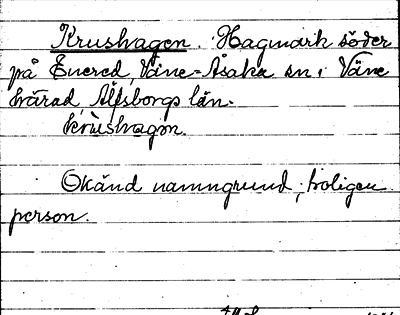 Krushagen. Hagmark söder
på Enered, Väne-Åsaka sn i Väne
härad, Älfsborgs län.
krùshagən.
Okänd namngrund; troligen
person.